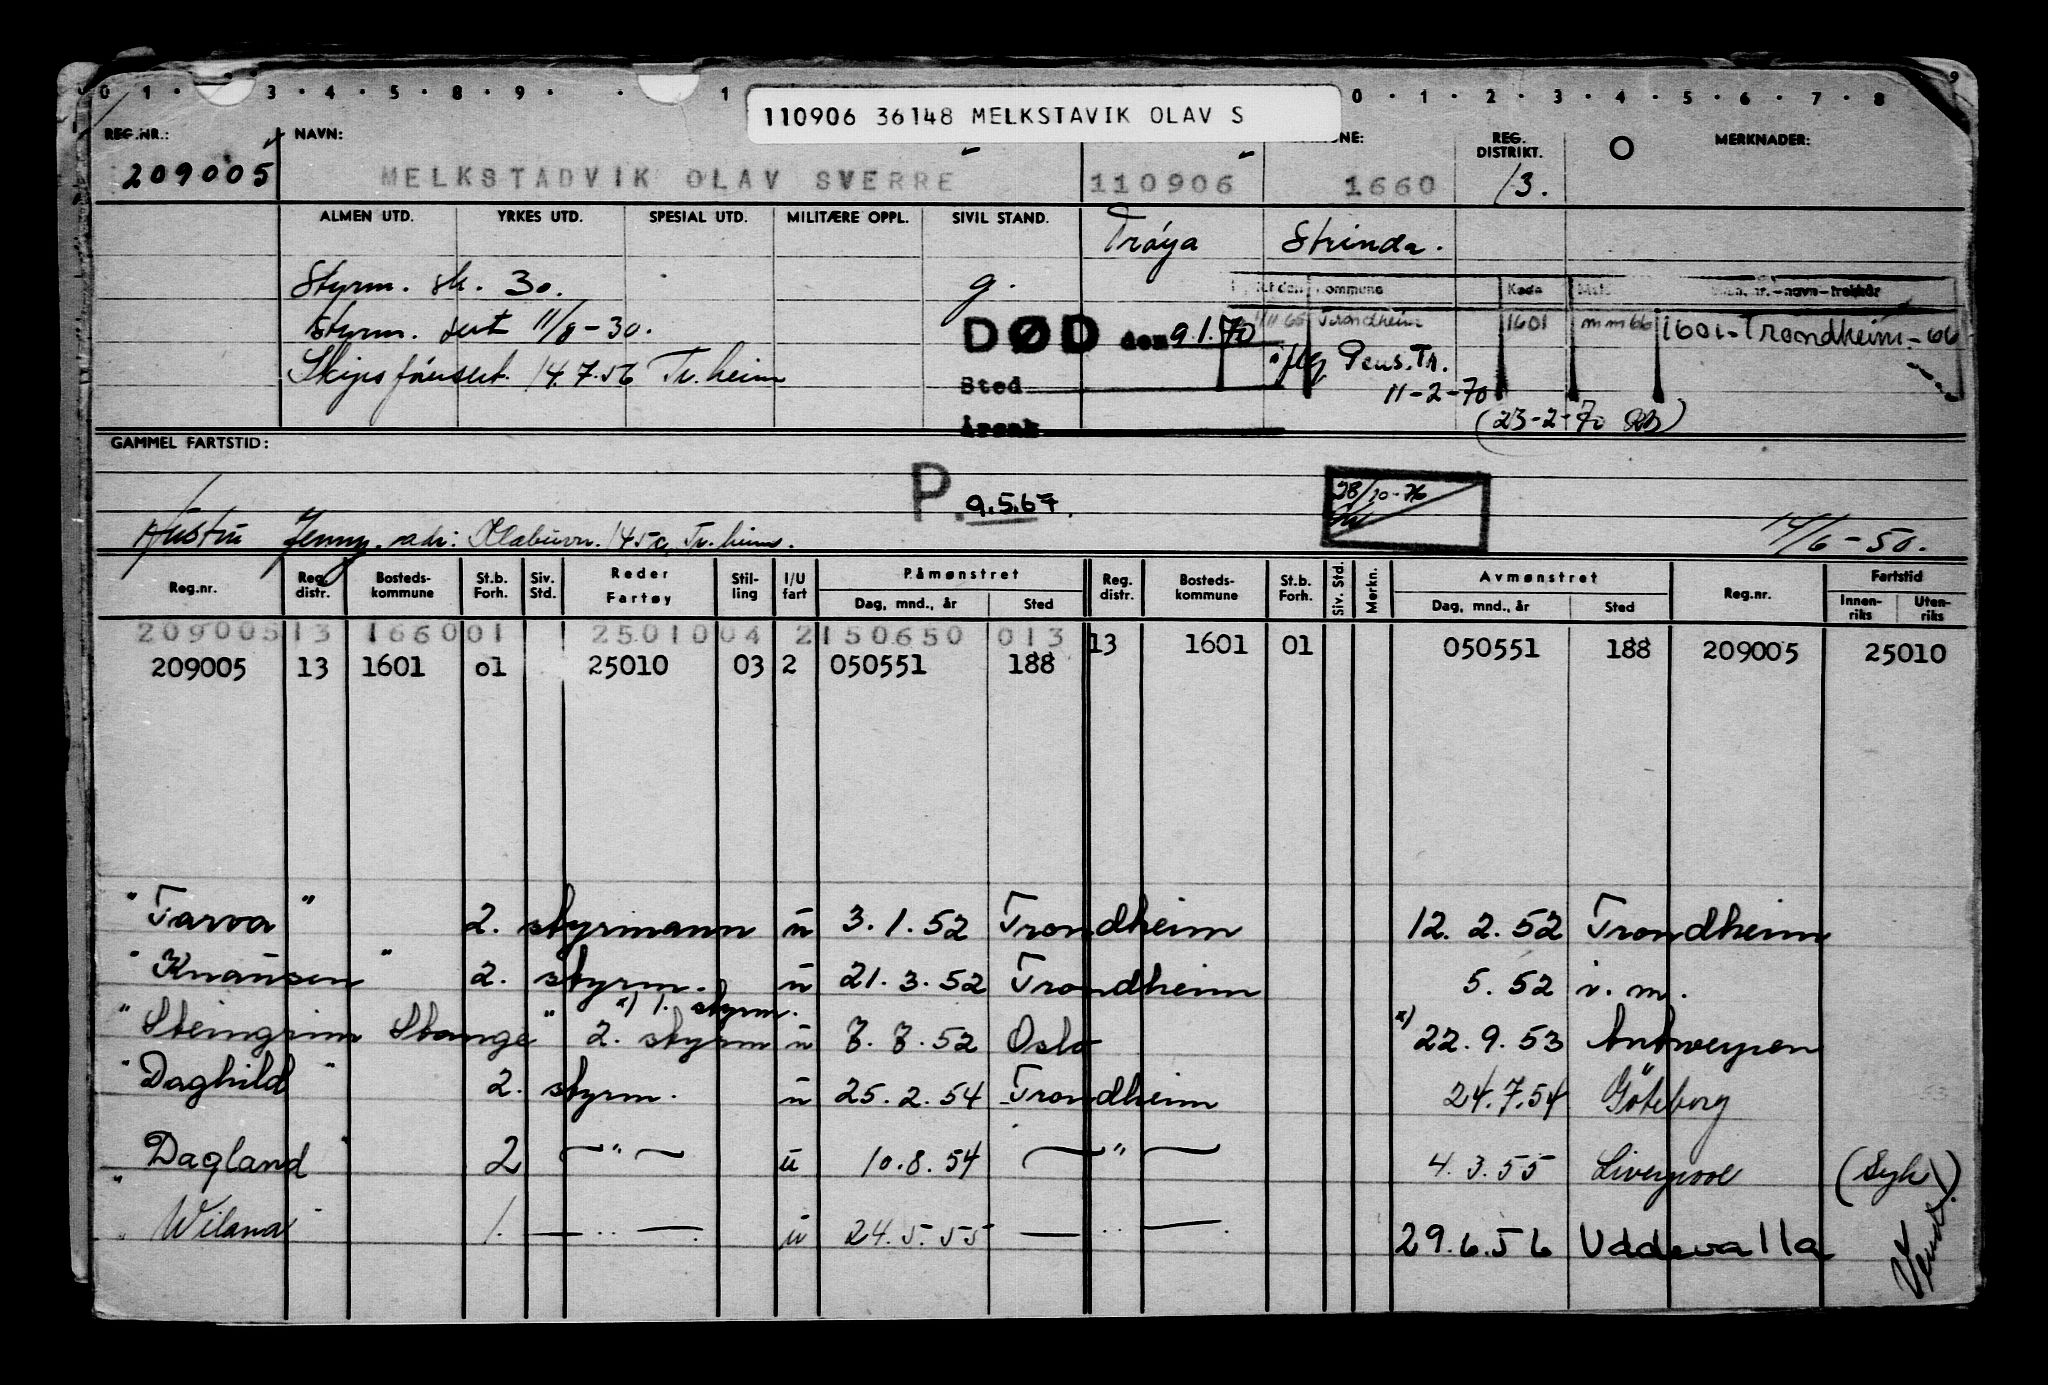 0 1 · 3 · 4 · 5 · 8 · 9 · · 1 0 · 1 · 2 · 3 · 4 · 5 · 6 · 7 · 8 9
110906 36148 MELKSTAVIK OLAV S
REG.NR.: NAVN: NE: REG. DISTRIKT. O MERKNADER:
209005 MELKSTADVIK OLAV SVERRE 110906 1660 13.
ALMEN UTD. YRKES UTD. SPESIAL UTD. MILITÆRE OPPL. SIVIL STAND. Frøya Strinda.
Styrm. sk. 30. g. Kommune Kode – navn – trekkår
styrm. sert 11/8-30. DØD den 9.1.70 Trondheim 1601 mm66 1601-Trondheim-66
Skipsførersert. 14.7.56 Tr.heim Sted iflg Pens.Tr.
11-2-70
Årsak (23-2-70)
GAMMEL FARTSTID:
P. 9.5.67. 28/10-76
Hustru Jenny. adr: Klabuvn. 145c, Tr.heim. 14/6-50.
Reg.nr. Reg. distr. Bosteds-kommune St.b. Forh. Siv. Std. Reder Fartøy Stil-ling I/U fart Påmønstret Dag, mnd., år Sted Reg. distr. Bosteds-kommune St.b. Forh. Siv. Std. Merkn. Avmønstret Dag, mnd., år Sted Reg.nr. Fartstid Innen-riks Uten-riks
209005 13 1660 01 25010 04 2 150650 013 13 1601 01 050551 188 209005 25010
209005 13 1601 01 25010 03 2 050551 188
"Tarva" 2. styrmann u 3.1.52 Trondheim 12.2.52 Trondheim
"Knausen" 2. styrm. u 21.3.52 Trondheim 5.52 i.m.
x) 1. styrm.
"Steingrim Stange" 2. styrm u 7.7.52 Oslo x) 22.9.53 Antwerpen
"Daghild" 2. styrm. u 25.2.54 Trondheim 24.7.54 Göteborg
"Dagland" 2 —"— u 10.8.54 —"— 4.3.55 Liverpool (Syk)
"Wilana" 1. —"— u 24.5.55 —"— 29.6.56 Uddevalla
Vend!